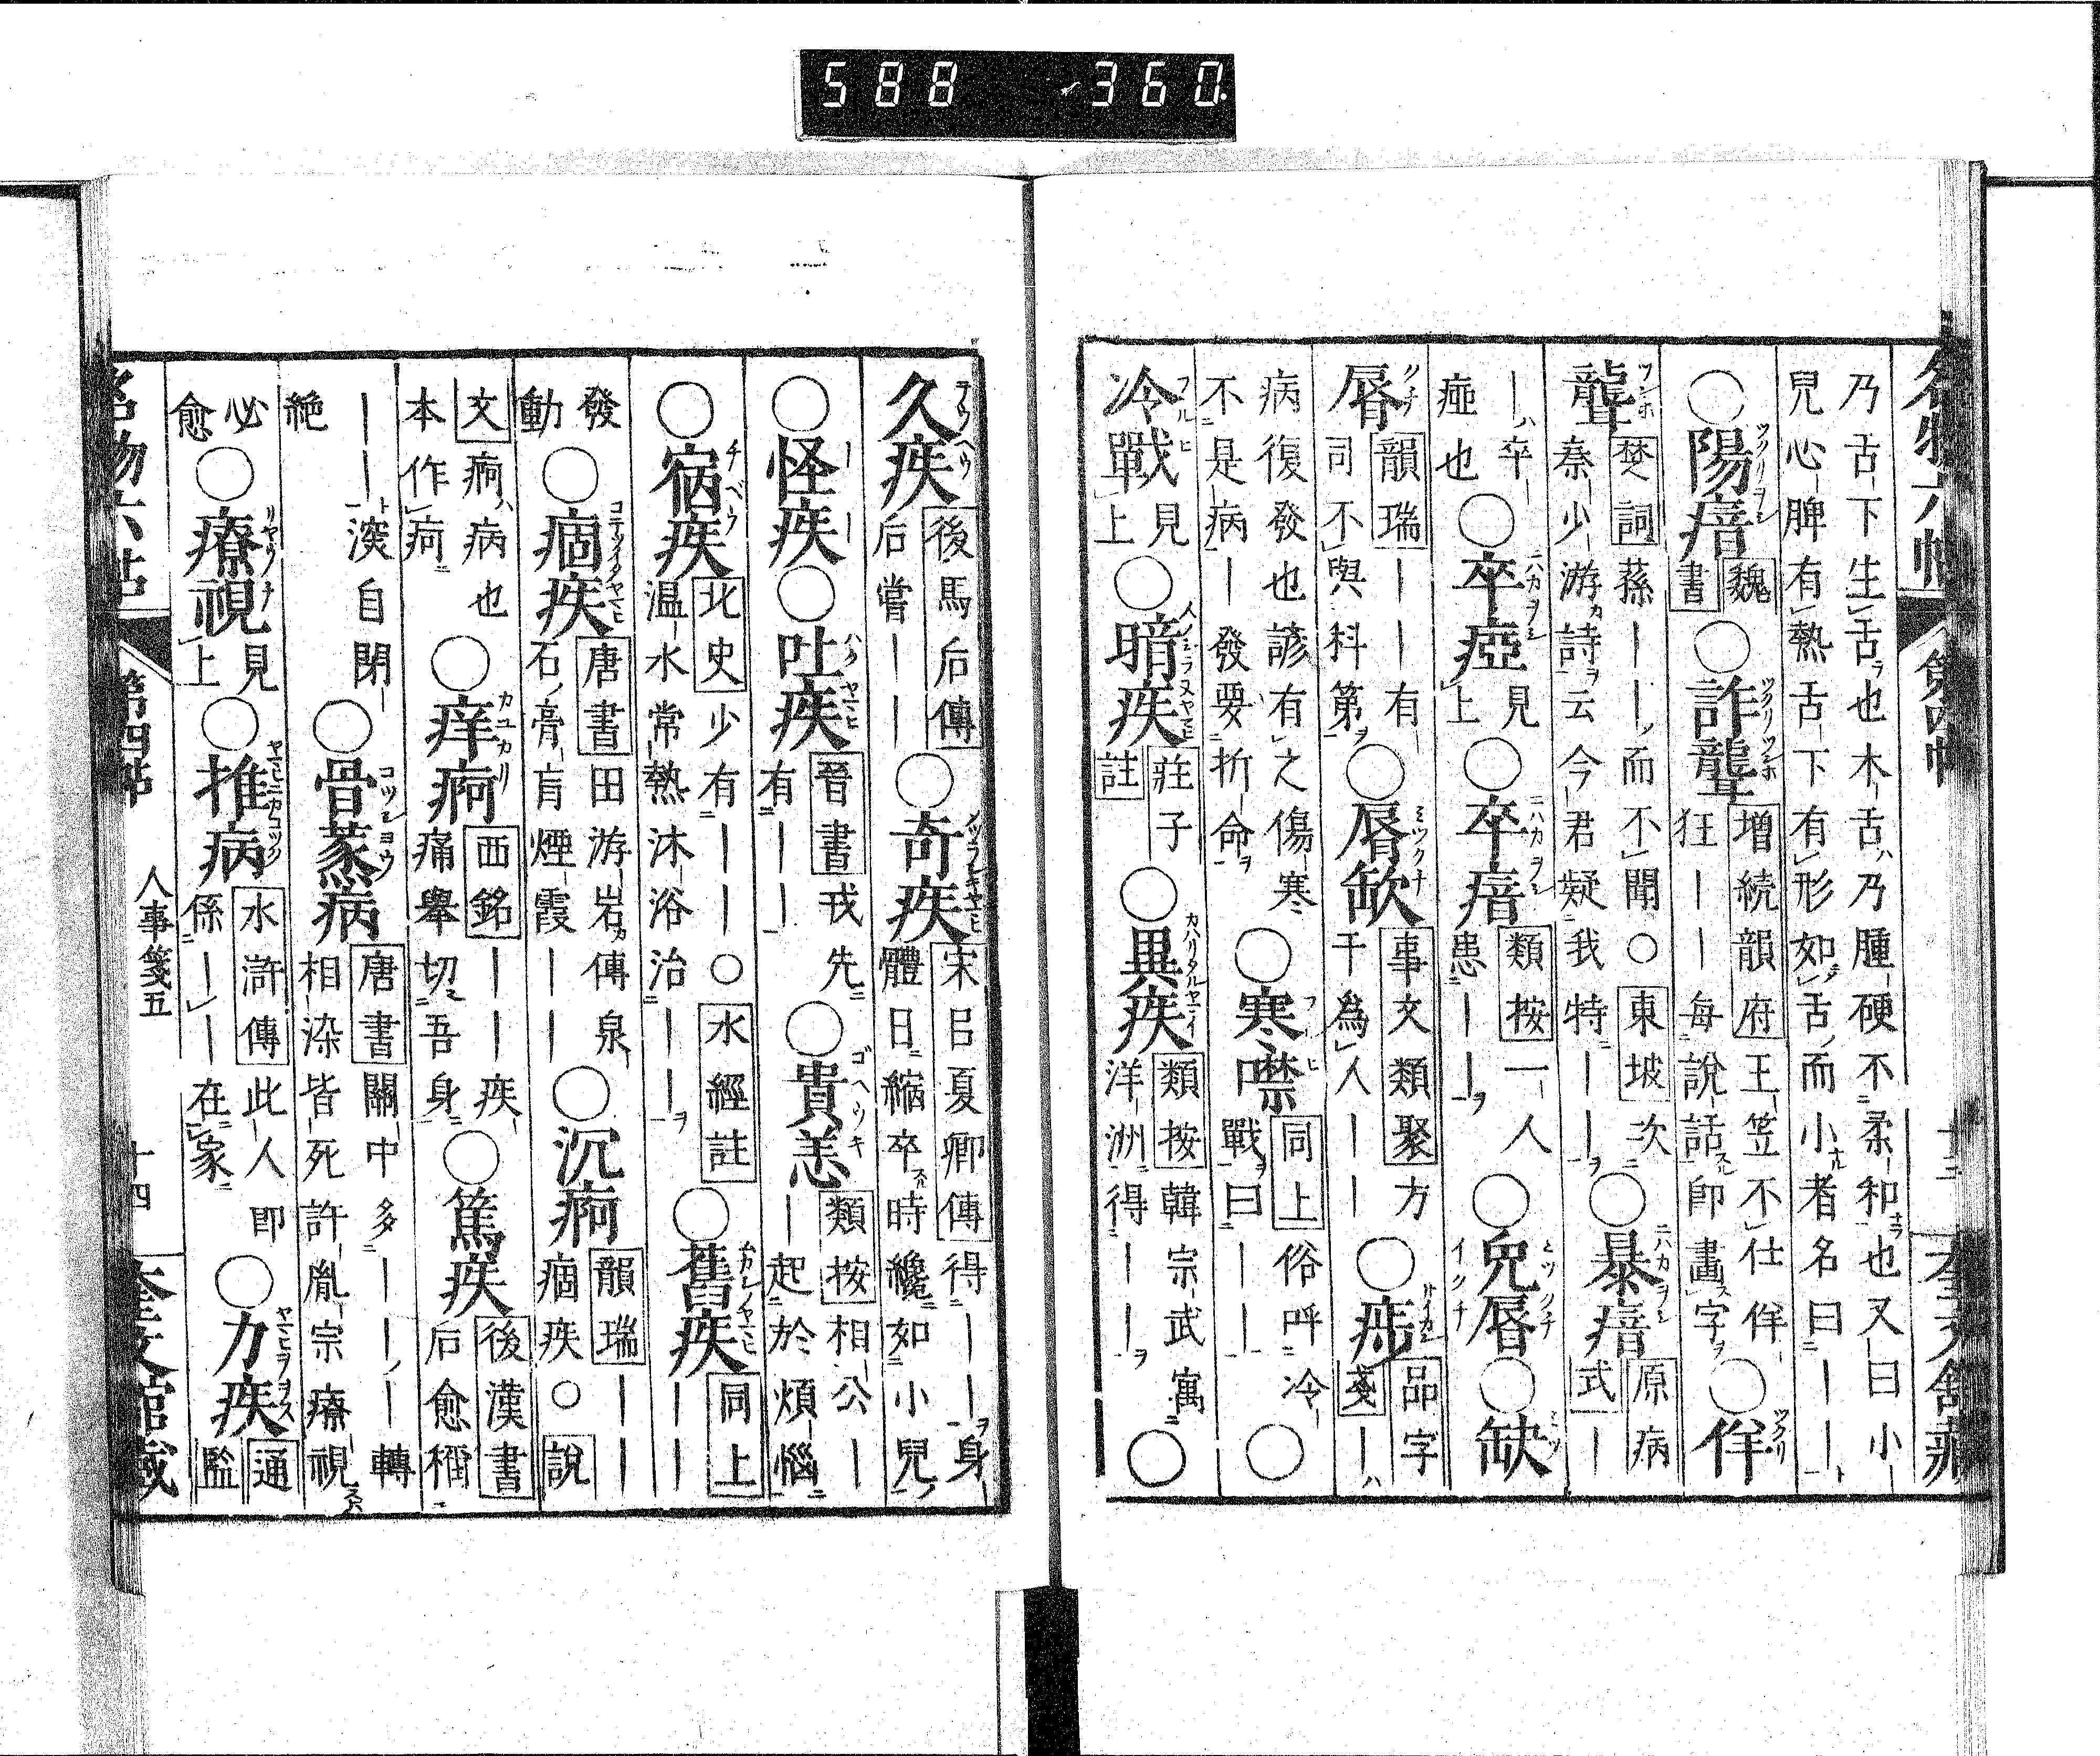 588 360
名物六帖 第四帖
乃舌下生舌也木舌乃腫硬不柔和也又曰小
兒心脾有熱舌下有形如舌而小者名曰――
○陽瘖 魏書 ○詐聾 増続韻府 王笠不仕佯狂――毎説話即畫字 ○佯
聾 楚詞 蓀――而不聞○東坡 次秦少游詩云今君疑我特―― ○暴瘖 原病式 ―
―卒瘂也 ○卒瘂 見上 ○卒瘖 類按 一人患―― ○兔唇 ○缺
唇 韻瑞 ――有司不與科第 ○唇缺 事文類聚 方干為人―― 品字箋 ―
病復發也諺有之傷寒不是病―發要折命 ○寒噤 同上 俗呼冷戰曰―― ○
冷戰 見上 ○暗疾 荘子註 ○異疾 類按 韓宗武寓洋洲得―― ○
久疾 後馬后傳 后嘗―― ○奇疾 宋呂夏卿傳 得――身體日縮卒時纔如小兒
○怪疾 ○吐疾 晉書 戎先有―― ○貴恙 類按 相公―起於煩惱
○宿疾 北史 少有――○水經註 温水常熱沐浴治―― ○舊疾 同上 ――
發動 ○痼疾 唐書 田游岩傳泉石膏肓煙霞―― ○沉痾 韻瑞 ――痼疾○説
文 痾病也本作疴 ○痒痾 西銘 ――疾痛舉切吾身 ○篤疾 後漢書 后愈稱
――淡自閉絶 ○骨蒸病 唐書 關中多――轉相染皆死許胤宗療視
必愈 ○療視 見上 ○推病 水滸傳 此人即係――在家 ○力疾 通鑑
名物六帖 第四帖 人事箋五 十四 奎文館藏